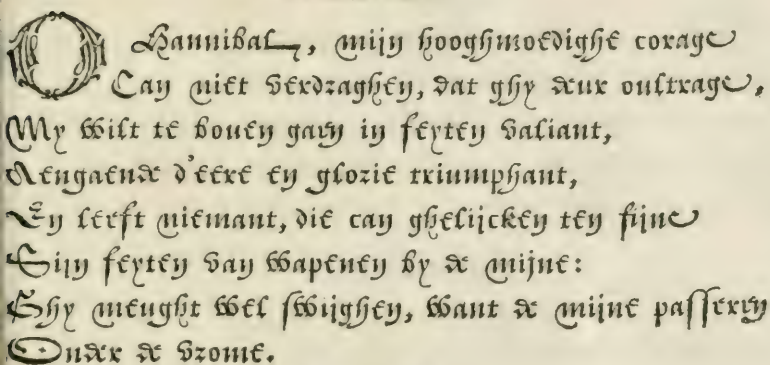 O Hannibal, mijn hooghmoedighe corage
Can niet verdraghen, dat ghy deur oultrage,
My wilt te boven gaen in feyten valiant,
Aengaende d'eere en glorie triumphant,
En leeft niemant, die can ghelijcken ten fijne
Sijn feyten van wapenen by de mijne:
Ghy meught wel swijghen, want de mijne passeren
Onder de vrome.